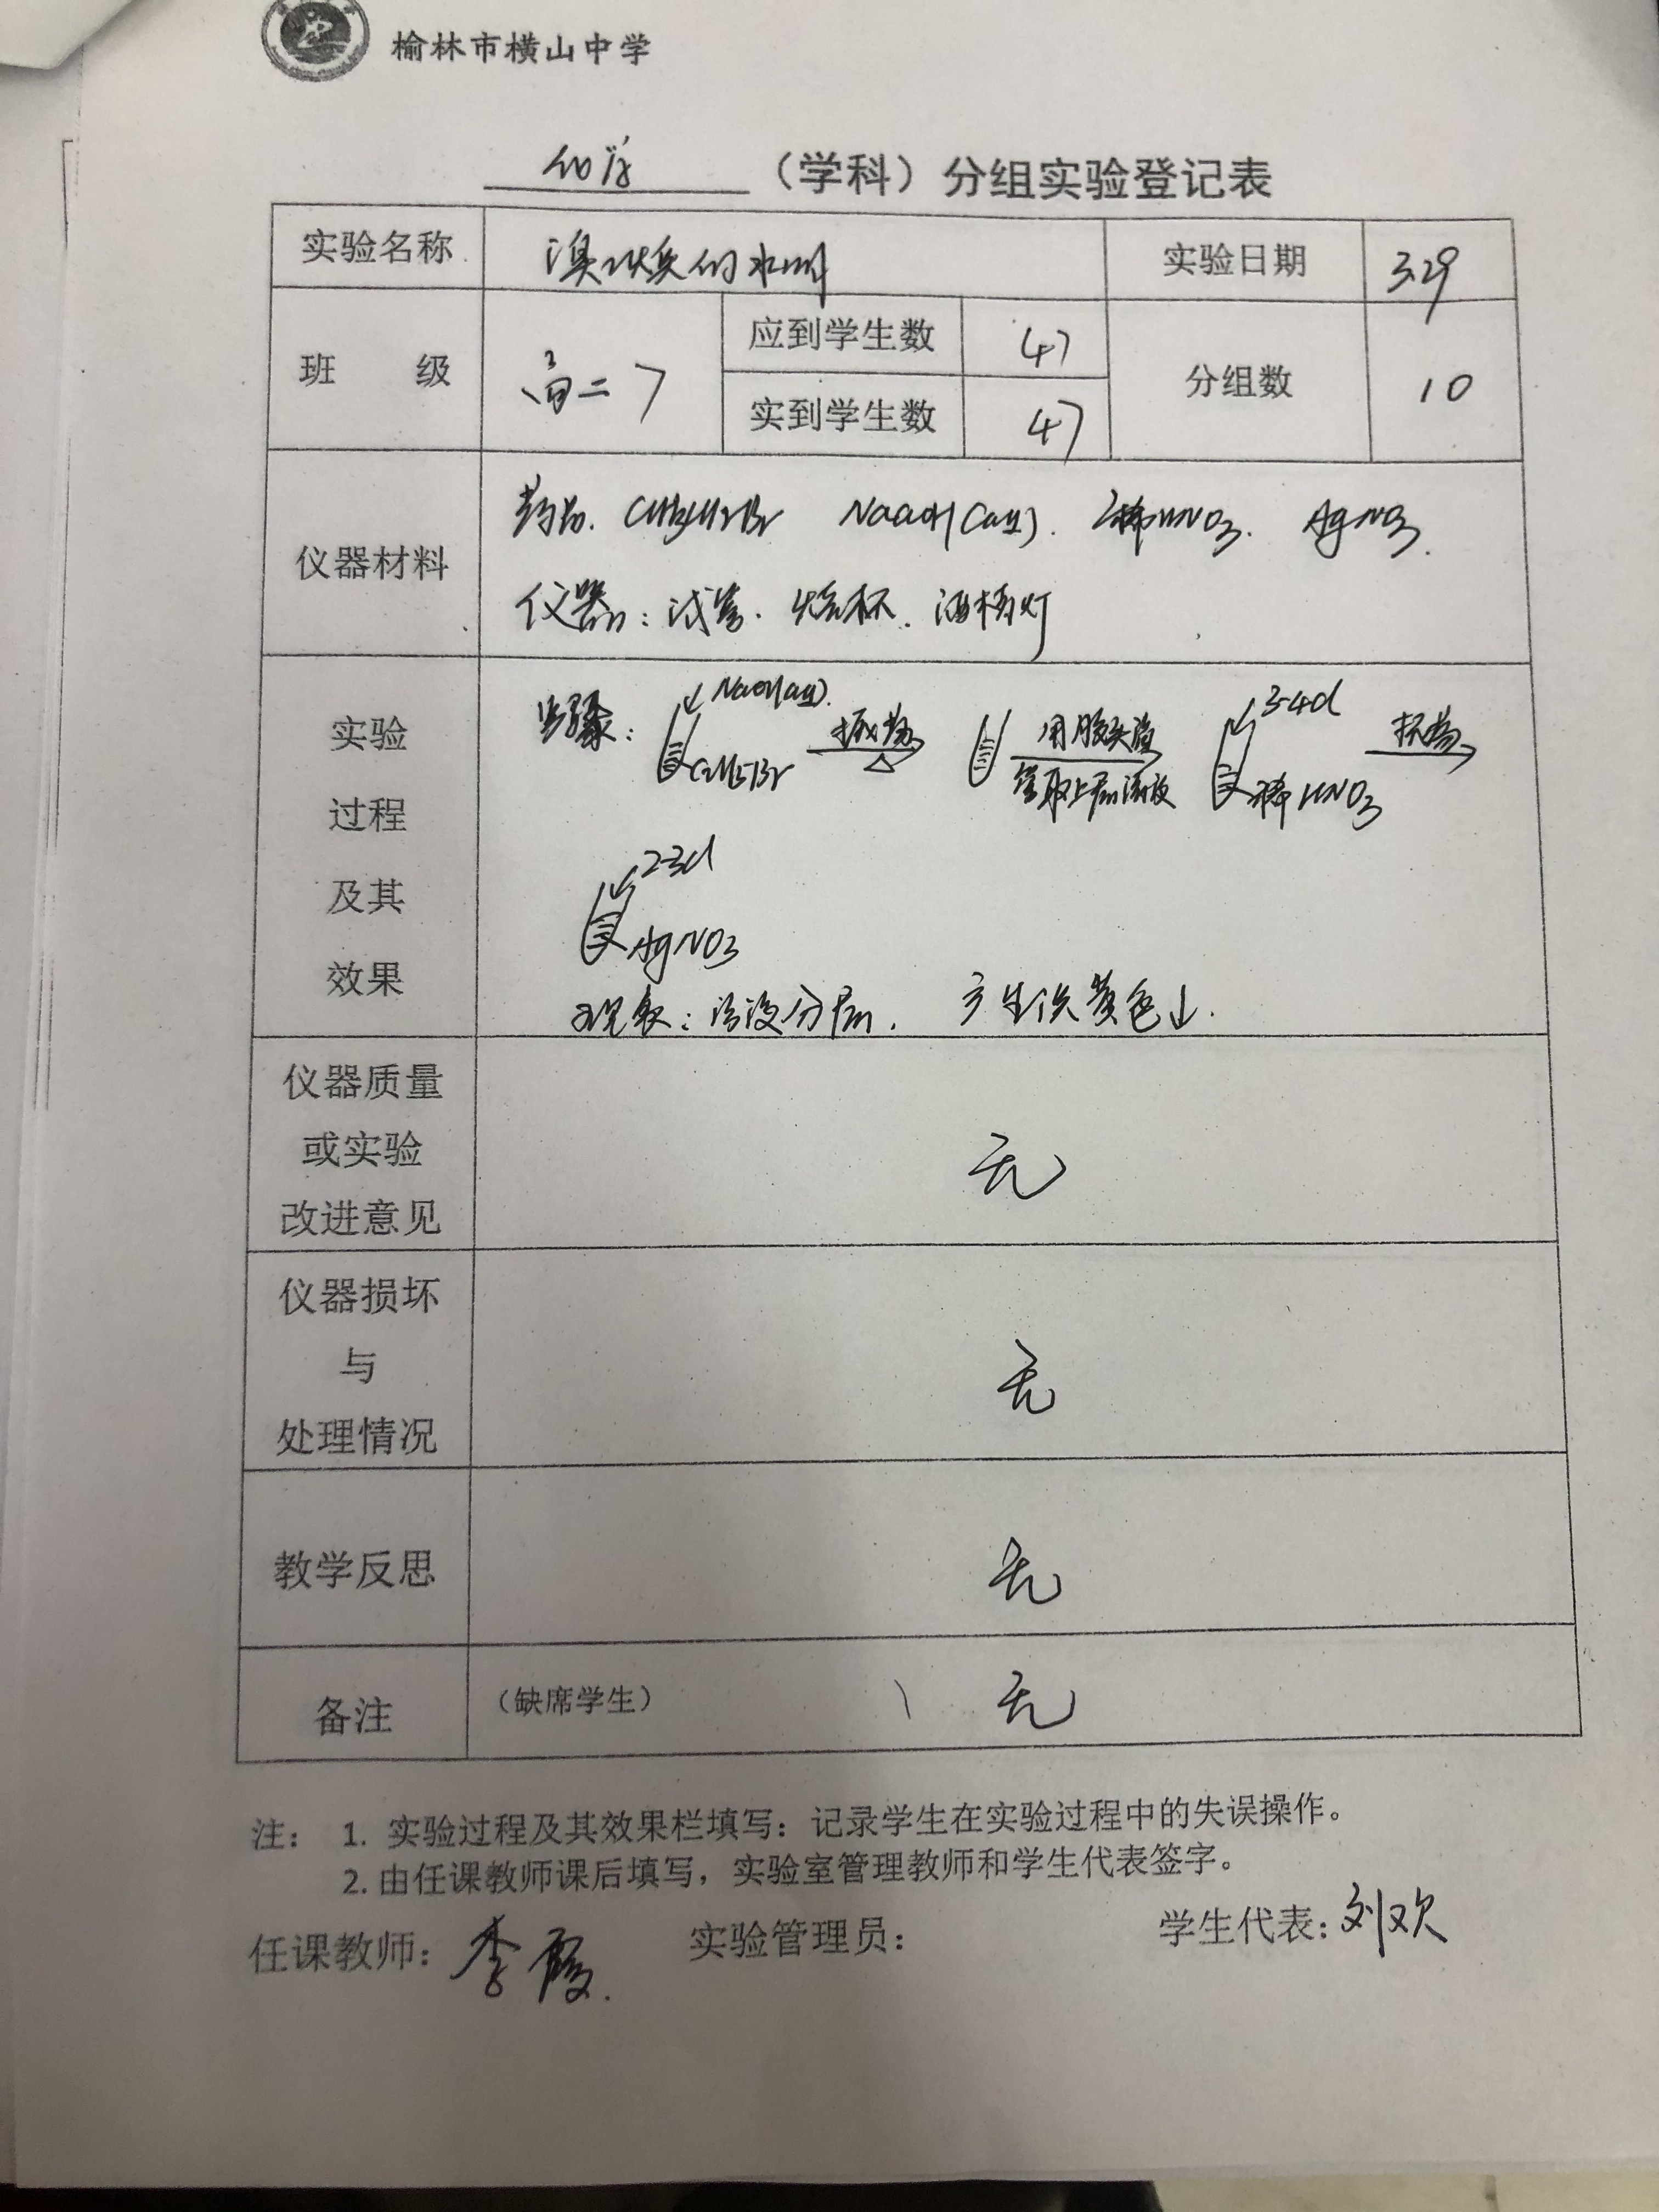 榆林市横山中学
化学 （学科）分组实验登记表
实验名称 溴乙烷的水解 实验日期 3.29
班 级 高二7 应到学生数 47 分组数 10
实到学生数 47
仪器材料
药品. CH3CH2Br NaOH(aq). 稀HNO3. AgNO3.
仪器：试管. 烧杯. 酒精灯
实验
过程
及其
效果
步骤： NaOH(aq). C2H5Br 振荡 △ 用胶头滴管取上层清液 3-4d 稀HNO3 振荡
2-3d
AgNO3
现象：溶液分层. 产生淡黄色↓.
仪器质量
或实验
改进意见
无
仪器损坏
与
处理情况
无
教学反思 无
备注 （缺席学生） 无
注： 1. 实验过程及其效果栏填写：记录学生在实验过程中的失误操作。
2. 由任课教师课后填写，实验室管理教师和学生代表签字。
任课教师：李霞. 实验管理员： 学生代表：刘欢